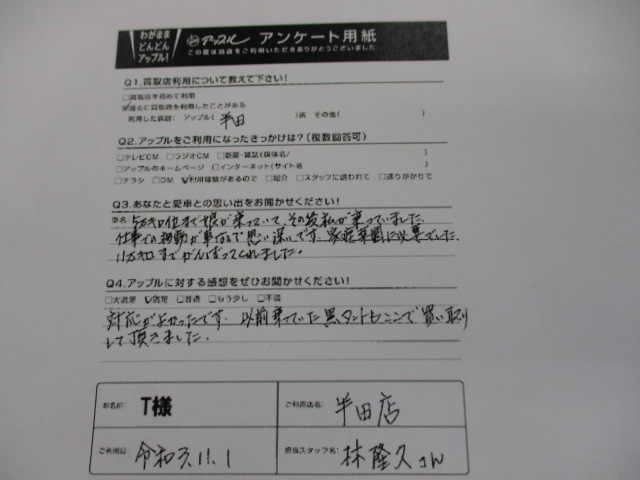 わがまま
どんどん
アップル!
アップル アンケート用紙
この度は当店をご利用いただきありがとうございました
Q1.買取店利用について教えて下さい!
□買取店を初めて利用
☑過去に買取店を利用したことがある
利用した店舗: アップル( 半田 )店 その他( )
Q2.アップルをご利用になったきっかけは?(複数回答可)
□テレビCM □ラジオCM □新聞・雑誌(媒体名/ )
□アップルのホームページ □インターネット(サイト名 )
□チラシ □DM ☑利用経験があるので □紹介 □スタッフに誘われて □通りがかりで
Q3.あなたと愛車との思い出をお聞かせください!
車名: 5万キロ位まで娘が乗っていて、その後私が乗っていました。
仕事での移動が車なので思い深いです。家庭菜園に必要でした。
11万キロまでがんばってくれました。
Q4.アップルに対する感想をぜひお聞かせください!
□大満足 ☑満足 □普通 □もう少し □不満
対応がよかったです。以前乗っていた黒タントもここで買い取り
して頂きました。
お名前: T様
ご利用店名: 半田店
ご利用日: 令和3.11.1
担当スタッフ名: 林隆久さん